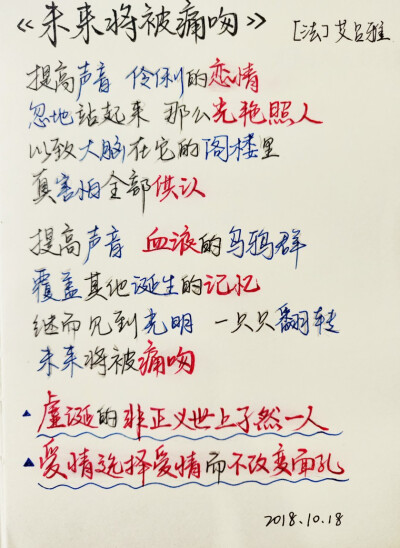 《未来将被痛吻》
[法]艾吕雅
提高声音 伶俐的恋情
忽地站起来 那么光艳照人
以致大脑在它的阁楼里
真害怕全部供认
提高声音 血液的乌鸦群
覆盖其他诞生的记忆
继而见到光明 一只只翻转
未来将被痛吻
▲虚诞的非正义世上孑然一人
▲爱情选择爱情而不改变面孔
2018.10.18